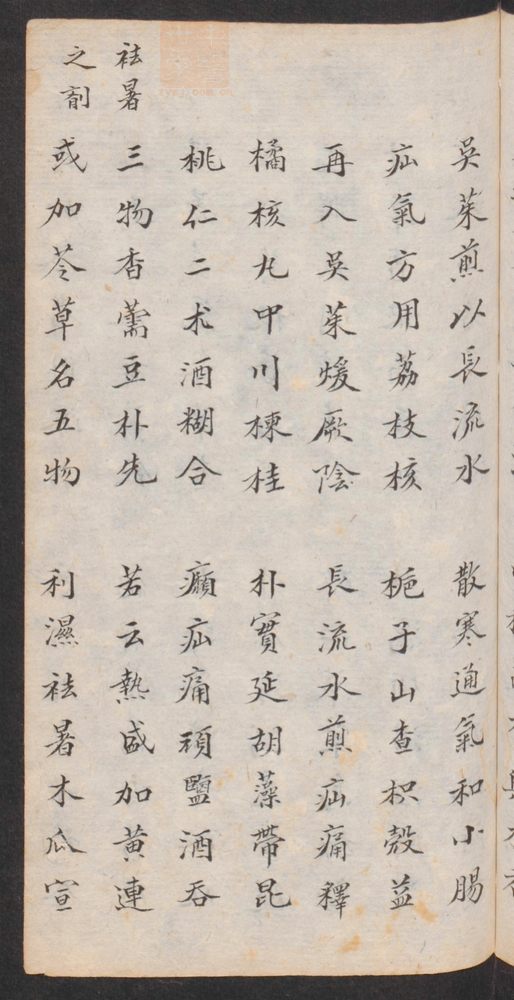 吳茱煎以長流水 散寒通氣和小腸
疝氣方用荔枝核 栀子山查枳殼益
再入吳茱煖厥陰 長流水煎疝痛釋
橘核丸中川楝桂 朴實延胡藻帶昆
桃仁二术酒糊合 癩疝痛頑鹽酒吞
袪暑之剤
三物香薷豆朴先 若云熱盛加黄連
或加苓草名五物 利濕袪暑木瓜宣